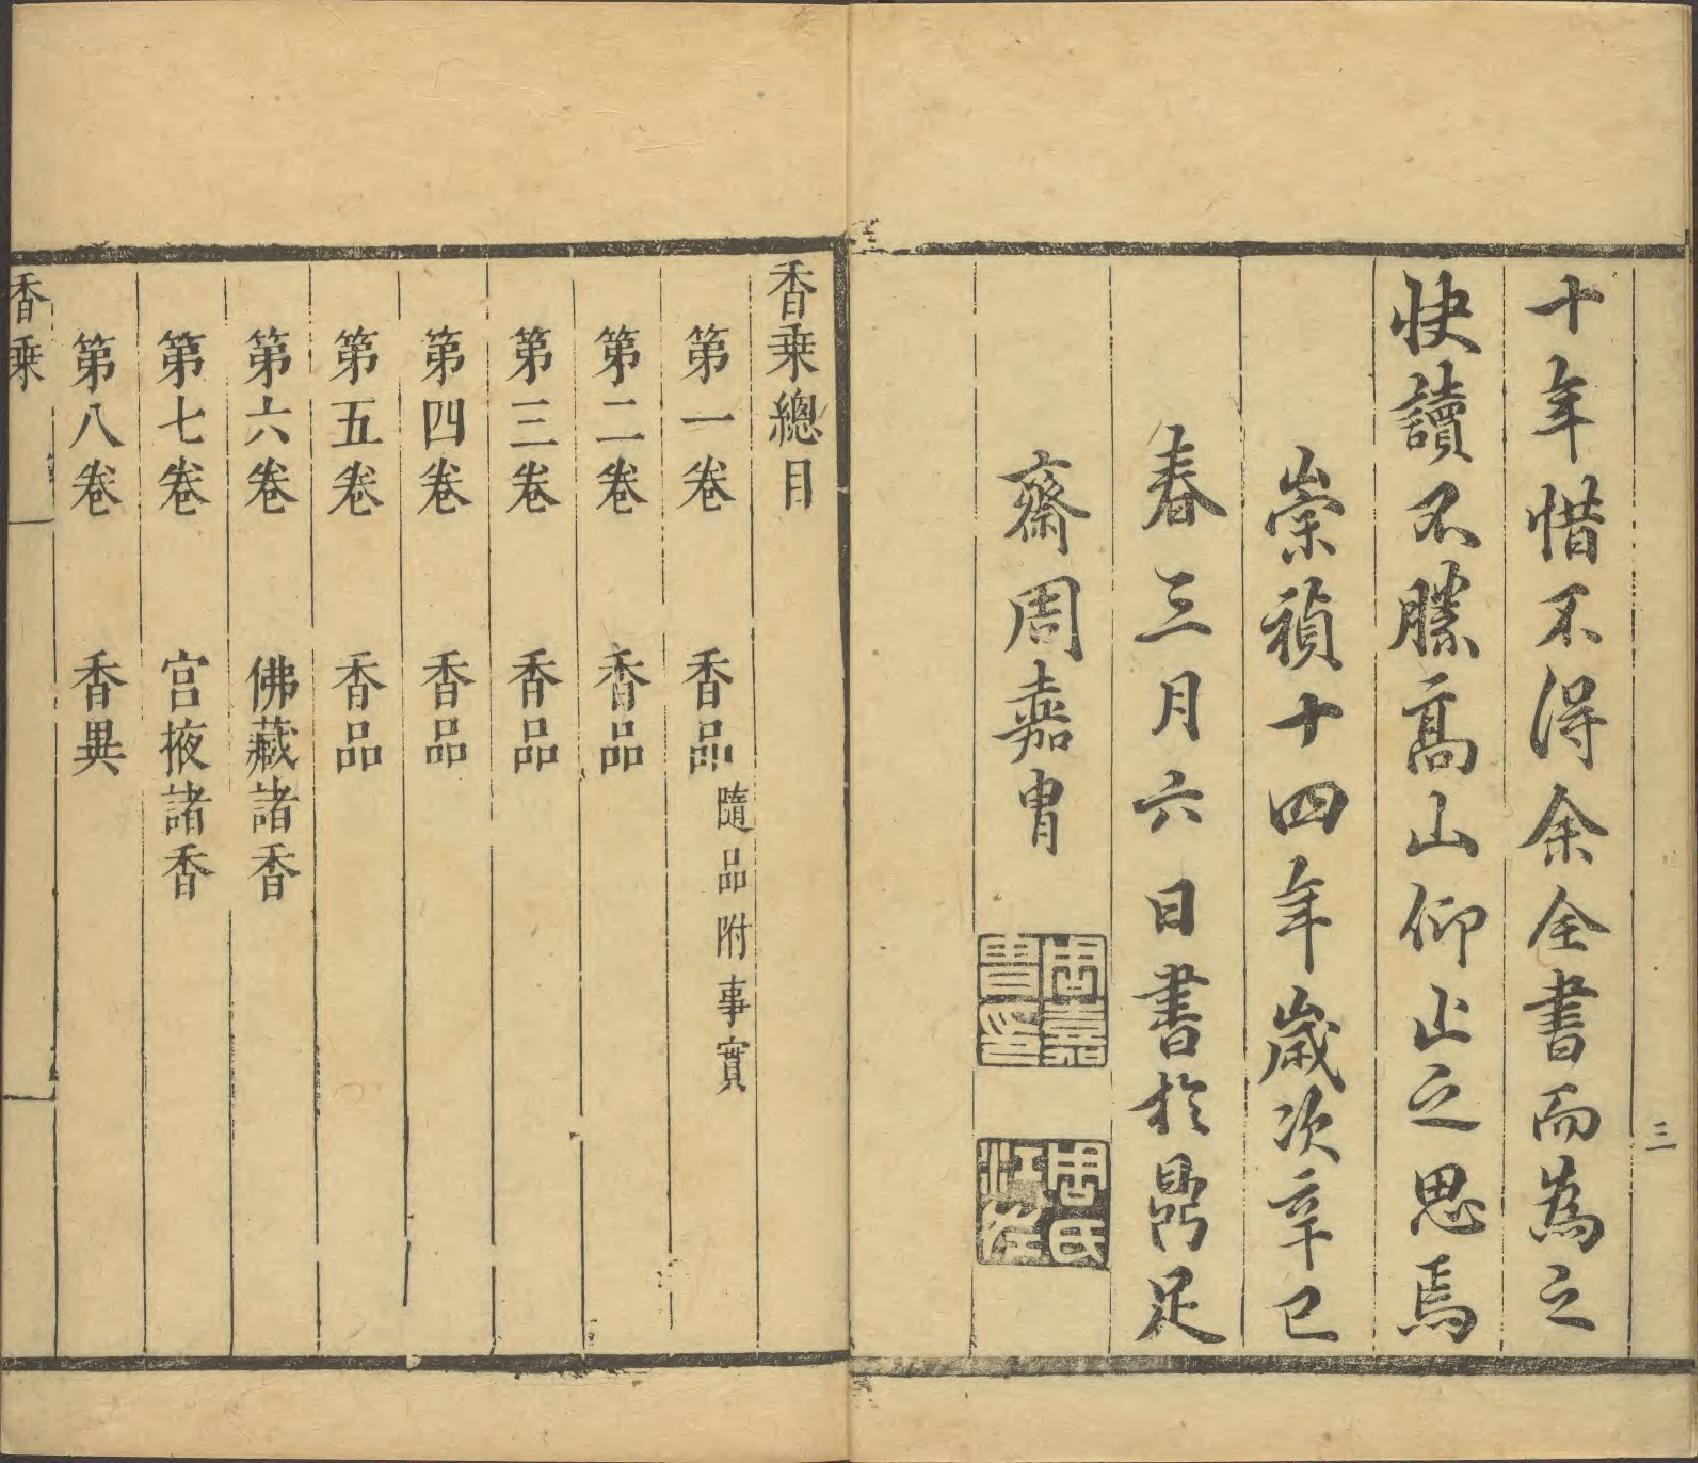 三
十年惜不得余全書而為之
快讀不勝高山仰止之思焉
崇禎十四年歲次辛巳
春三月六日書於鼎足
齋周嘉胄
周嘉胄印
周氏江左
香乗總目
第一卷 香品隨品附事實
第二卷 香品
第三卷 香品
第四卷 香品
第五卷 香品
第六卷 佛藏諸香
第七卷 宮掖諸香
第八卷 香異
香乗